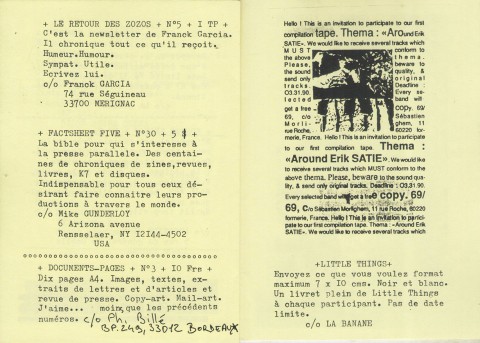 + LE RETOUR DES ZOZOS + N°5 + I TP +
C'est la newsletter de Franck Garcia.
Il chronique tout ce qu'il reçoit.
Humeur.Humour.
Sympat. Utile.
Ecrivez lui.
c/o Franck GARCIA
74 rue Séguineau
33700 MERIGNAC
+ FACTSHEET FIVE + N°30 + 5 $ +
La bible pour qui s'interesse à
la presse parallele. Des centai-
nes de chroniques de zines,revues,
livres, K7 et disques.
Indispensable pour tous ceux dé-
sirant faire connaitre leurs pro-
ductions à travers le monde.
c/o Mike GUNDERLOY
6 Arizona avenue
Rensselaer, NY I2I44-4502
USA
+ DOCUMENTS-PAGES + N°3 + IO Frs +
Dix pages A4. Images, textes, ex-
traits de lettres et d'articles et
revue de presse. Copy-art. Mail-art.
J'aime... moins que les précédents
numéros. c/o Ph. Billé
BP.249, 33012 BORDEAUX
Hello ! This is an invitation to participate to our first
compilation tape. Thema : «Around Erik
SATIE». We would like to receive several tracks which
MUST conform to
the above thema.
Please, beware to
the sound quality, &
send only original
tracks. Deadline :
O3.31.90. Every se-
lected band will
get a free copy.
69, c/o Sébastien
Morli- ghem, 11
rue Roche, 60220 for-
merie, France. Hello ! This is an invitation to participate
to our first compilation tape. Thema :
«Around Erik SATIE». We would like
to receive several tracks which MUST conform to the
above thema. Please, beware to the sound qua-
lity, & send only original tracks. Deadline : O3.31.90.
Every selected band will get a free copy. 69/
69, C/o Sébastien Morlighem, 11 rue Roche, 60220
formerie, France. Hello ! This is an invitation to partici-
pate to our first compilation tape. Thema : «Around Erik
SATIE». We would like to receive several tracks which
+LITTLE THINGS+
Envoyez ce que vous voulez format
maximum 7 x IO cms. Noir et blanc.
Un livret plein de Little Things
à chaque participant. Pas de date
limite.
c/o LA BANANE